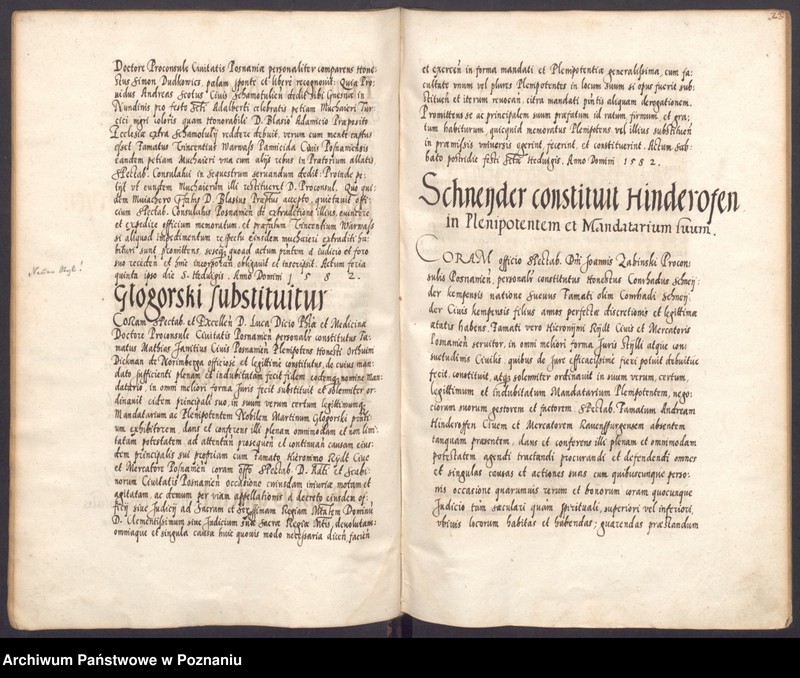 Doctore Proconsule Ciuitatis Posnaniæ personaliter comparens Hone-
stus Simon Dudkowicz, palam sponte et liberè recognouit: Quia Pro-
uidus Andreas Scotus Ciuis Schamotulien dedit sibi Gnesnæ in
Nundinis pro festo Scti Adalberti celebratis petiam Muchaieri Tur-
cici nigri coloris quam honorabili D. Blasio Adamicio Præposito
Ecclesiæ extra Schamotuly reddere debuit, verum cum mente captus
esset, famatus Vincentius Warwass Pannicida Ciuis Posnaniensis
eandem petiam Muchaieri vna cum alijs rebus in Prætorium allatis
Spectab. Consulatui in sequestrum seruandum dedit: Proinde pe-
tijt vt eundem Muchaierum illi restitueret D. Proconsul. Quo qui-
dem Muchaiero D. Blasius Præfatus accepto, quietauit offi-
cium Spectab. Consulatus Posnanien de extraditione illius, euincere
et expedire officium memoratum, et præfatum Vincentium Warwass
si aliquod impedimentum respectu eiusdem muchaieri extraditi ha-
bituri sunt promittens, seseq quoad actum præsentem a iudicio et foro
suo recedens et huic incorporans obligauit et inscripsit. Actum feria
quinta ipso die S. Hedwigis, Anno Domini 1 5 8 2.
Glogorski substituitur
Coram Spectab. et Excellen D. Luca Dicio Phiæ et Medicinæ
Doctore Proconsule Ciuitatis Posnanien personaliter constitutus Fa-
matus Mathias Janitius Ciuis Posnanien Plenipotens Honesti Orthuini
Dickman de Norimberga officiose et legittimè constitutus, de cuius man-
dato sufficienti plenam et indubitatam fecit fidem eodemq nomine man-
datorio in omni meliori forma Juris fecit substituit et solemniter or-
dinauit eidem principali suo, in suum verum certum legittimumq
Mandatarium ac Plenipotentem Nobilem Martinum Glogorski præsenti-
um exhibitorem, dans et conferens illi plenam omnimodam et non limi-
tatam potestatem, ad attentam prosequen et continuan causam eius-
dem principalis sui propriam cum Famato Hieronimo Rÿdt Ciue
et Mercatore Posnanien coram offo Spectab. D. Aduti et Scabi-
norum Ciuitatis Posnanien occasione cuiusdam iniuriæ motam et
agitatam, ac demum per viam appellationis a decreto eiusdem of-
ficij siue Judicij ad Sacram et Serenissimam Regiam Mtatem Dominum
D. Clementissimum siue Judicium suæ Sacræ Regiæ Mtis, deuolutam:
omniaque et singula causæ huic quouis modo necessaria dicen facien
et exercen in forma mandati et Plenipotentiæ generalissima, cum fa-
cultate vnum vel plures Plenipotentes in locum suum si opus fuerit sub-
stituen et iterum reuocan, citra mandati præsentis aliquam derogationem.
Promittens se ac principalem suum præfatum id ratum firmum, et gra-
tum habiturum, quicquid memoratus Plenipotens vel illius substituen
in præmissis vniuersis egerint, fecerint, et constituerint. Actum Sab-
bato postridie festi Sctæ Hedwigis, Anno Domini 1 5 8 2.
Schneyder constituit Hinderofen
in Plenipotentem et Mandatarium suum.
CORAM officio Spectab. Dni Joannis Zabinski Procon-
sulis Posnanien, personaliter constitutus Honestus Conrhadus Schneij-
der kempensis natione Sueuus Famati olim Conrhadi Schneij-
der Ciuis kempensis filius annos perfectæ discretionis et legittimæ
ætatis habens, Famati vero Hieronijmi Rÿdt Ciuis et Mercatoris
Posnanien seruitor, in omni meliori forma Juris styli atque con-
suetudinis Ciuilis, quibus de Jure efficacissime fieri potuit debuitue
fecit, constituit, atqȝ solemniter ordinauit in suum verum, certum,
legittimum et indubitatum Mandatarium Plenipotentem, nego-
ciorum suorum gestorem et factorem, Spectab. Famatum Andream
Hinderofen Ciuem et Mercatorem Rauenspurgensem absentem
tanquam præsentem, dans et conferens illi plenam et omnimodam
potestatem agendi tractandi procurandi et defendendi omnes
et singulas causas et actiones suas cum quibuscunque perso-
nis occasione quarumuis rerum et bonorum coram quocunque
Judicio tam sæculari quam spirituali, superiori vel inferiori,
vbiuis locorum habitas et habendas; quærendas præstandum
Archiwum Państwowe w Poznaniu